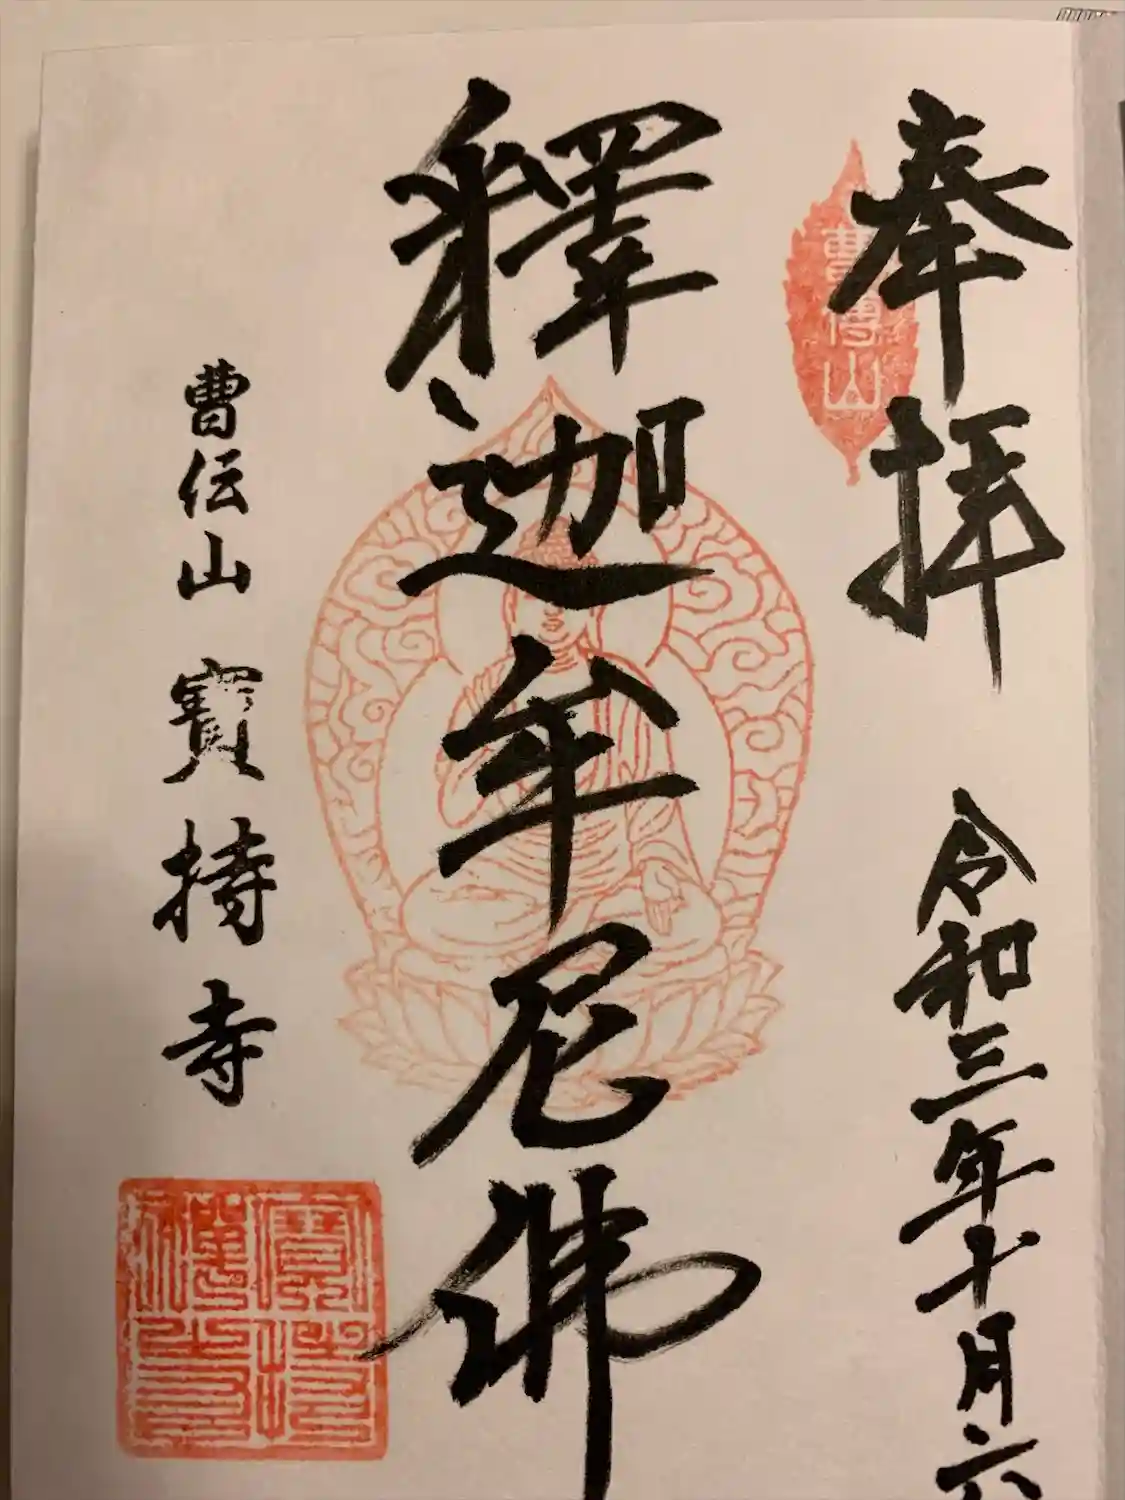 奉拝 令和三年十月六
曹傳山
釋迦牟尼佛
曹伝山 寶持寺
寶持禅寺